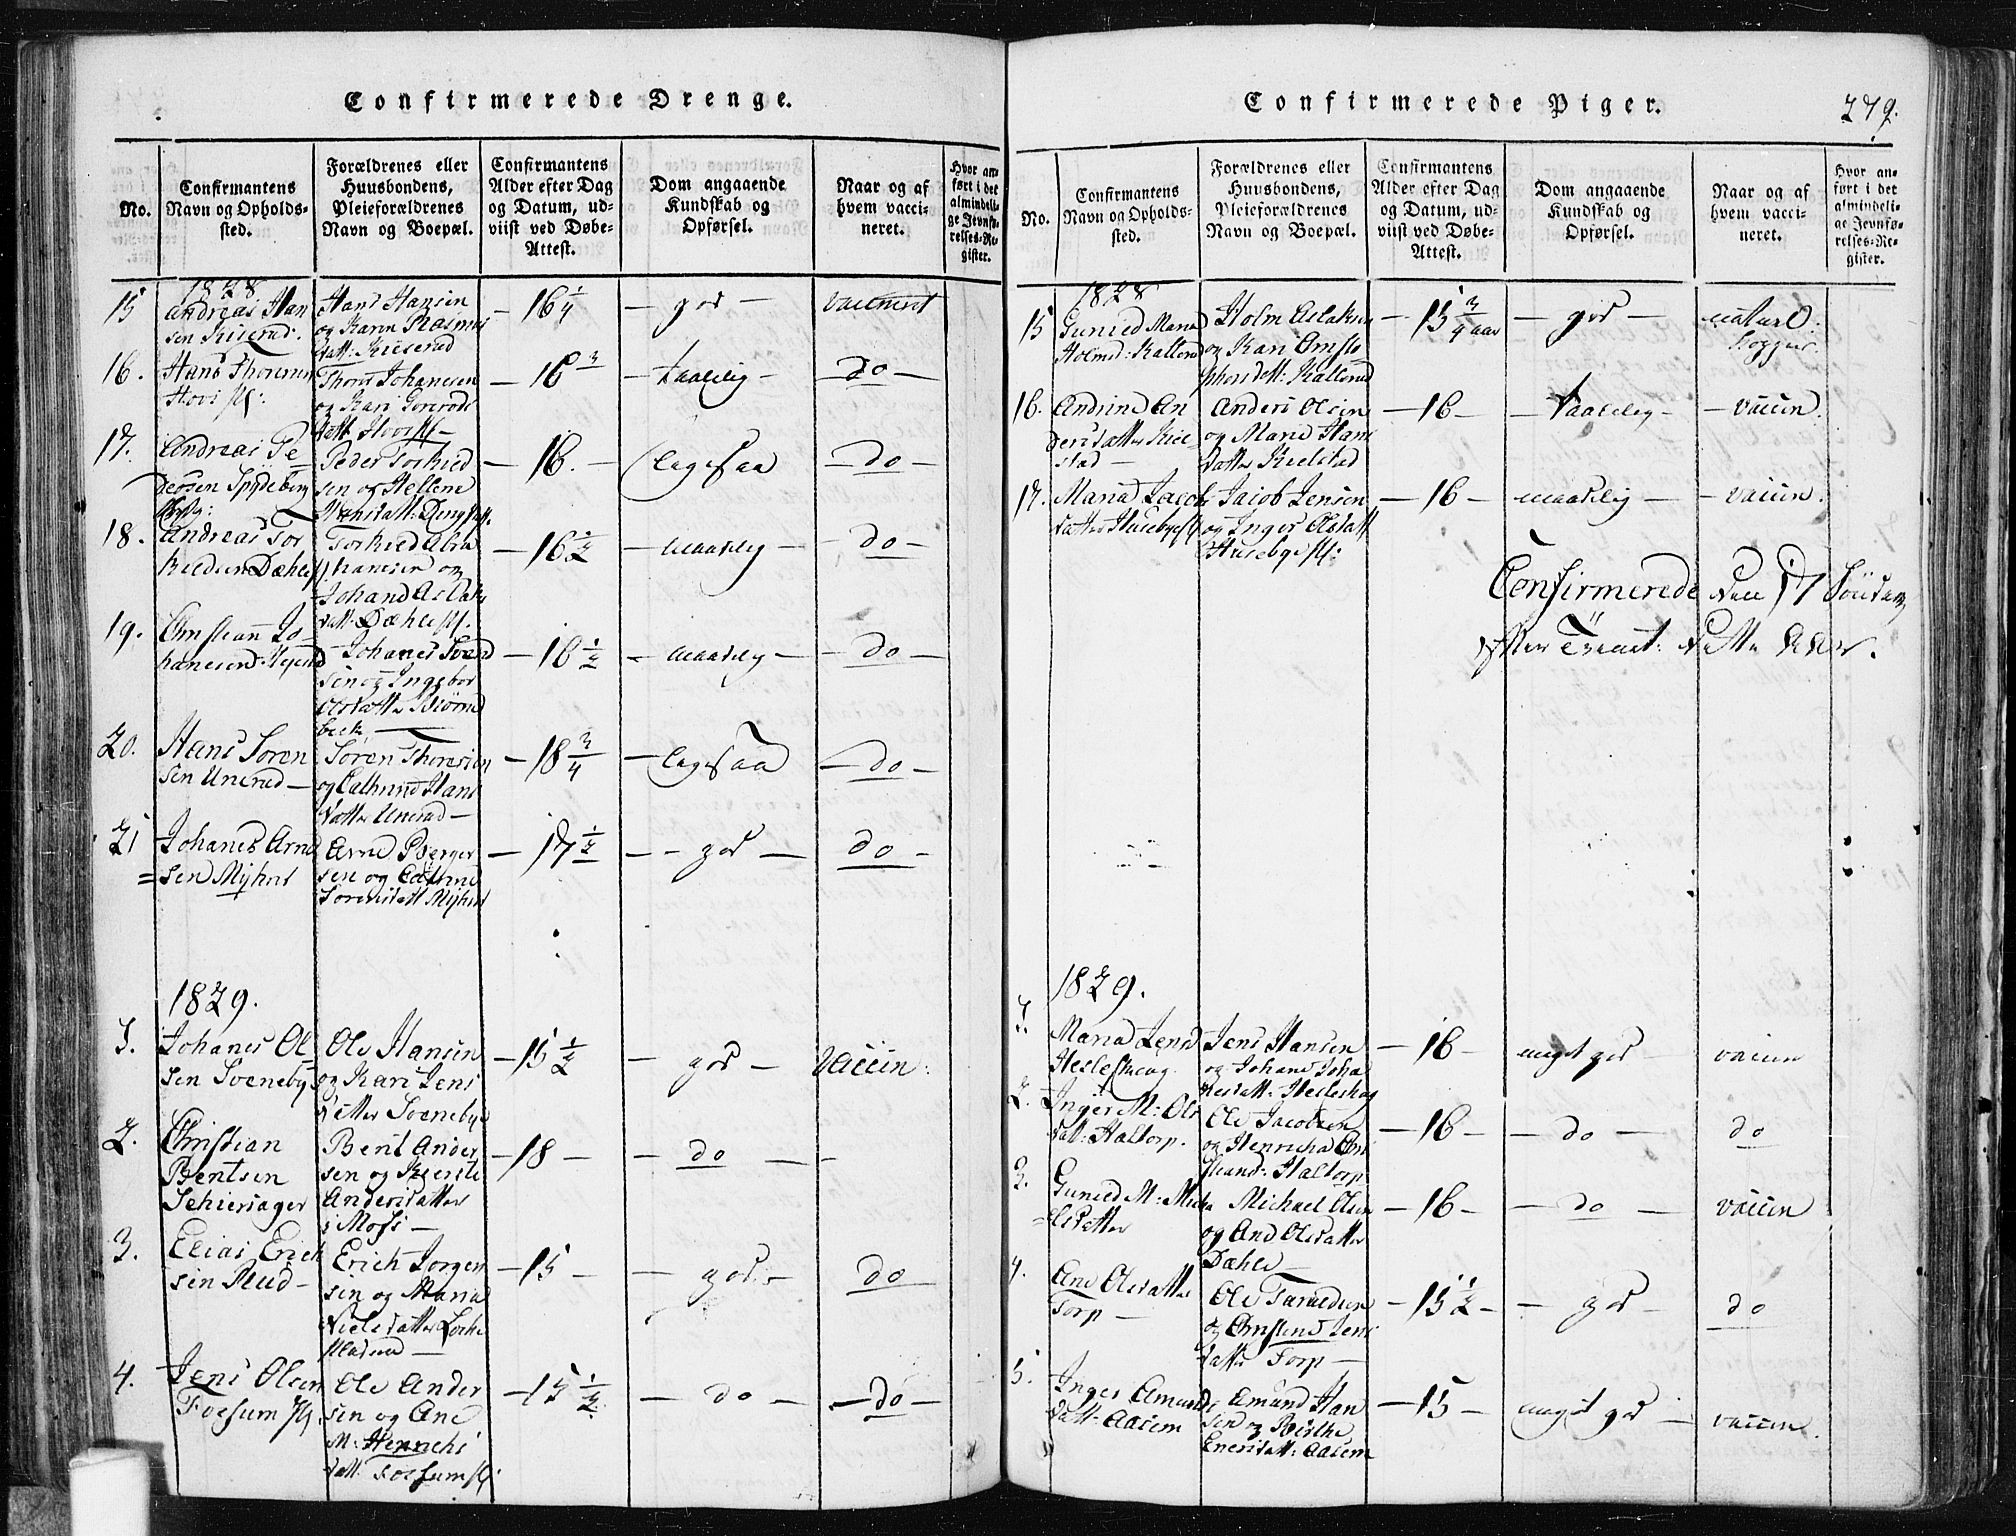 Confirmerede Drenge.
No.
Confirmantens
Navn og Opholds-
sted.
Forældrenes eller
Huusbondens,
Pleieforældrenes
Navn og Boepæl.
Confirmantens
Alder efter Dag
og Datum, ud-
viist ved Døbe-
Attest.
Dom angaaende
Kundskab og
Opførsel.
Naar og af
hvem vacci-
neret.
Hvor an-
ført i det
almindeli-
ge Jevnfø-
relses-Re-
gister.
1828
15
Andreas Han
sen
Hans Hansen
og Karen Rasmus
datt:
16 1/4
god
vaccinert
16.
Hans Thoresen
Thore Johanesen
og Kari
datt
16 3
taalelig
do
17.
Andreas Pe
dersen Spydeberg
Peder Torkild
sen og Hellene
16.
do
18.
Andreas Tor
kildsen Dæhle
Torkild Abra
hamsen og
Johane Aslaks
datt. Dæhle
16 1/2
maadelig
do
19.
Christian Jo
hanesen
Johanes Svend
sen og Ingebor
Olsdatter Biørne
bek
16 1/2
maadelig
do
20.
Hans Soren
sen Unerud
Soren Thoresen
og Cathrine Hans
datter Unerud
18 3/4
do
21
Johanes Arne
sen Myhre
Arne Berger
sen og Cathrine
Sorensdatt Myhre
17 1/2
god
do
1829.
1.
Johanes Ol
sen Sveneby
Ole Hansen
og Kari Jens
datter Sveneby
15 1/2
god
vaccin:
2.
Christian
Bentsen
Schiersager
Bent Ander
sen og Kierste
Andersdatter
i Moss
18
do
3.
Elias Erich
sen Rud
Erich Jorgen
sen og Maria
Nielsdatter
15
god
do
4.
Jens Olsen
Foesum
Ole Ander
sen og Ane
M: Henrichs
datt: Foesum
15 1/2
do
do
Confirmerede Piger.
279.
No.
Confirmantens
Navn og Opholds-
sted.
Forældrenes eller
Huusbondens,
Pleieforældrenes
Navn og Boepæl.
Confirmantens
Alder efter Dag
og Datum, ud-
viist ved Døbe-
Attest.
Dom angaaende
Kundskab og
Opførsel.
Naar og af
hvem vacci-
neret.
Hvor an-
ført i det
almindeli-
ge Jevnfø-
relses-Re-
gister.
1828
15
Gunild Maria
Holmsd:
Holm Aslaksen
og Kari Cristo
phersdatt:
15 3/4 aar
god
naturl.
Kopper.
16.
Andrine An
dersdatter Kiel
stad
Anders Olsen
og Marie Hans
datter Kielstad
16
taalelig
vaccin.
17.
Maria Jacobs
datter Huseby
Jacob Jensen
og Inger Olsdatt
Husebye
16
maadelig
vaccin.
Confirmerede den 17 Söndag
efter Trinit: dette Aar.
1829.
1.
Maria Jensd
Heslehoug
Jens Hansen
og Johane Joha
nesdatt: Heslehog
16
meget god
vaccin
2.
Inger M: Ols
datt: Haltorp.
Ole Jacobsen
og Henricha Chri
stiansd: Haltorp
16
do
do
3.
Gunild M: Micha
elsdatter
Michael Olsen
og Ane Olsdatter
Dæhle
16
do
vaccin
4.
Ane Olsdatter
Torp
Ole Taraldsen
og Christine Jens
datter Torp
15 1/2
god
do
5.
Inger Amunds
datt: Aasem
Amund Han
sen og Birthe
Enersdatt: Aasem
15
meget god
vaccin.